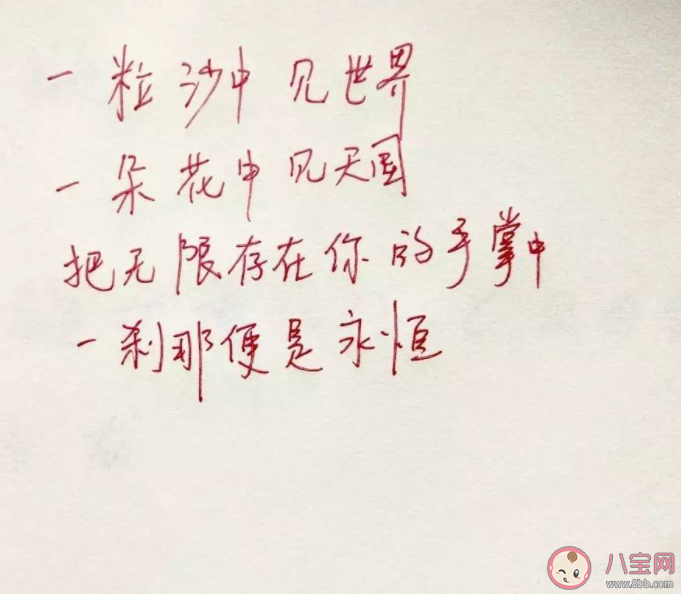 一粒沙中见世界
一朵花中见天国
把无限存在你的手掌中
一刹那便是永恒
八宝网
www.8bb.com